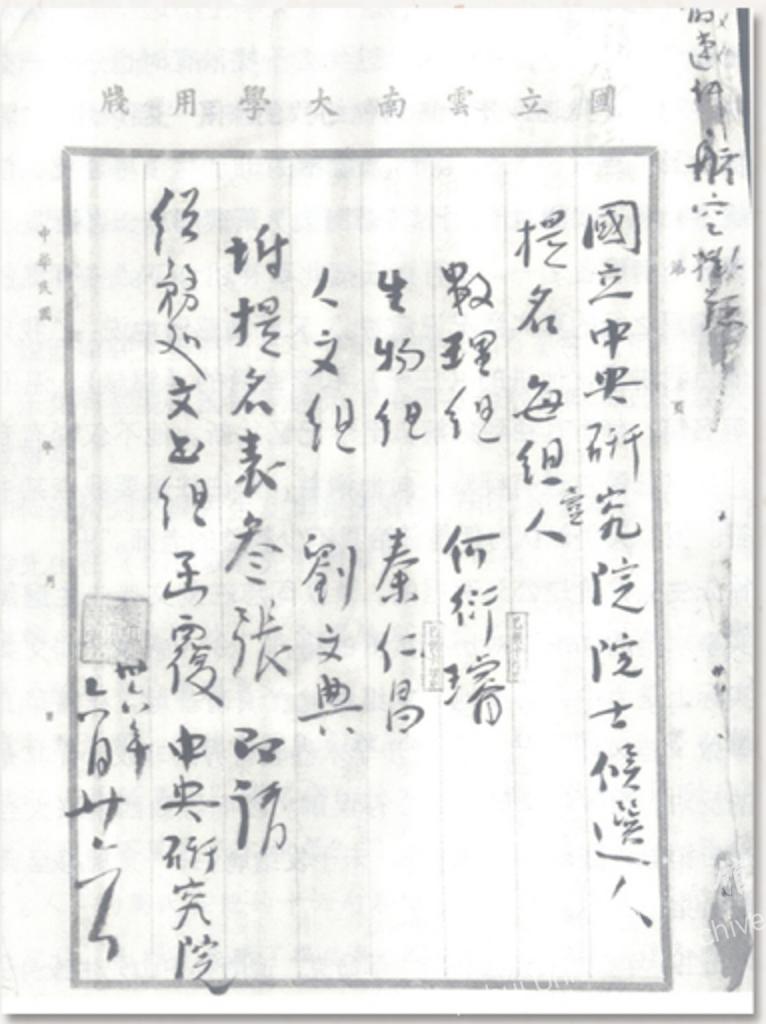 國立雲南大學用牋
國立中央研究院院士候選人
提名 每組壹人
數理組 何衍璿
生物組 秦仁昌
人文組 劉文典
坿提名表叁張 即請
總務處文書組函覆 中央研究院
中華民國 年 月 日
第 頁
航空掛號